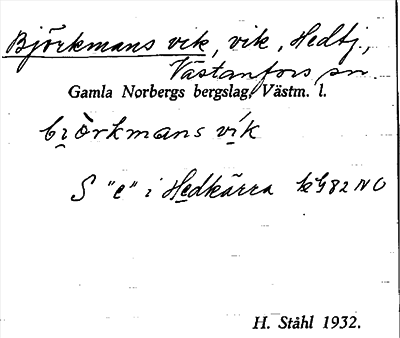 Björkmans vik, vik, Hedbj.,
Västanfors sn.
Gamla Norbergs bergslag, Västm. l.
bi̯ò̀rkmans vík
S "e" i Hedkärra kG82NO
H. Ståhl 1932.